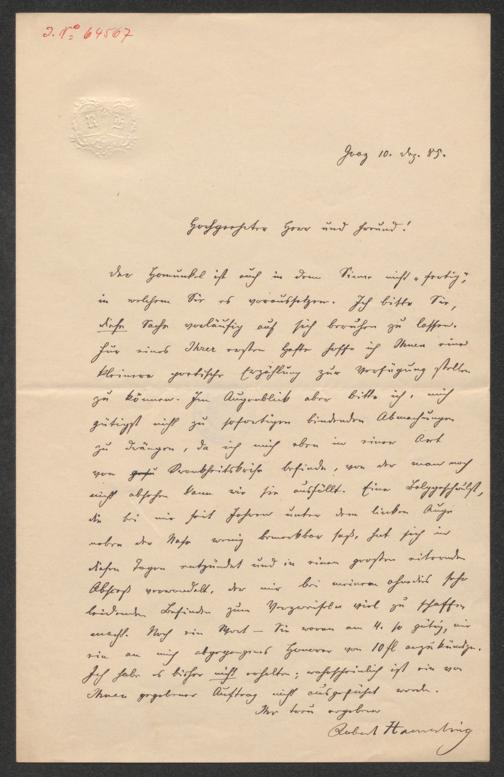 J. No 64567
R H
Graz 10. Dez. 85.
Hochgeehrter Herr und Freund!
Der Homunkel ist auch in dem Sinne nicht „fertig",
in welchem Sie es voraussetzen. Ich bitte Sie,
diese Sache vorläufig auf sich beruhen zu lassen.
Für eines Ihrer ersten Hefte hoffe ich Ihnen eine
kleinere poetische Erzählung zur Verfügung stellen
zu können. Im Augenblick aber bitte ich, mich
gütigst nicht zu sofortigen bindenden Abmachungen
zu drängen, da ich mich eben in einer Art
von Krankheitskrise befinde, von der man noch
nicht absehen kann wie sie ausfällt. Eine Balggeschwulst,
die bei mir seit Jahren unter dem linken Auge
neben der Nase wenig bemerkbar saß, hat sich in
diesen Tagen entzündet und in einen großen eiternden
Absceß verwandelt, der mir bei meinem ohnedies sehr
leidenden Befinden zum Verzweifeln viel zu schaffen
macht. Noch ein Wort — Sie waren am 4. so gütig, mir
ein an mich abgegangenes Honorar von 10 fl anzukündigen.
Ich habe es bisher nicht erhalten; wahrscheinlich ist ein von
Ihnen gegebener Auftrag nicht ausgeführt worden.
Ihr treu ergebener
Robert Hamerling